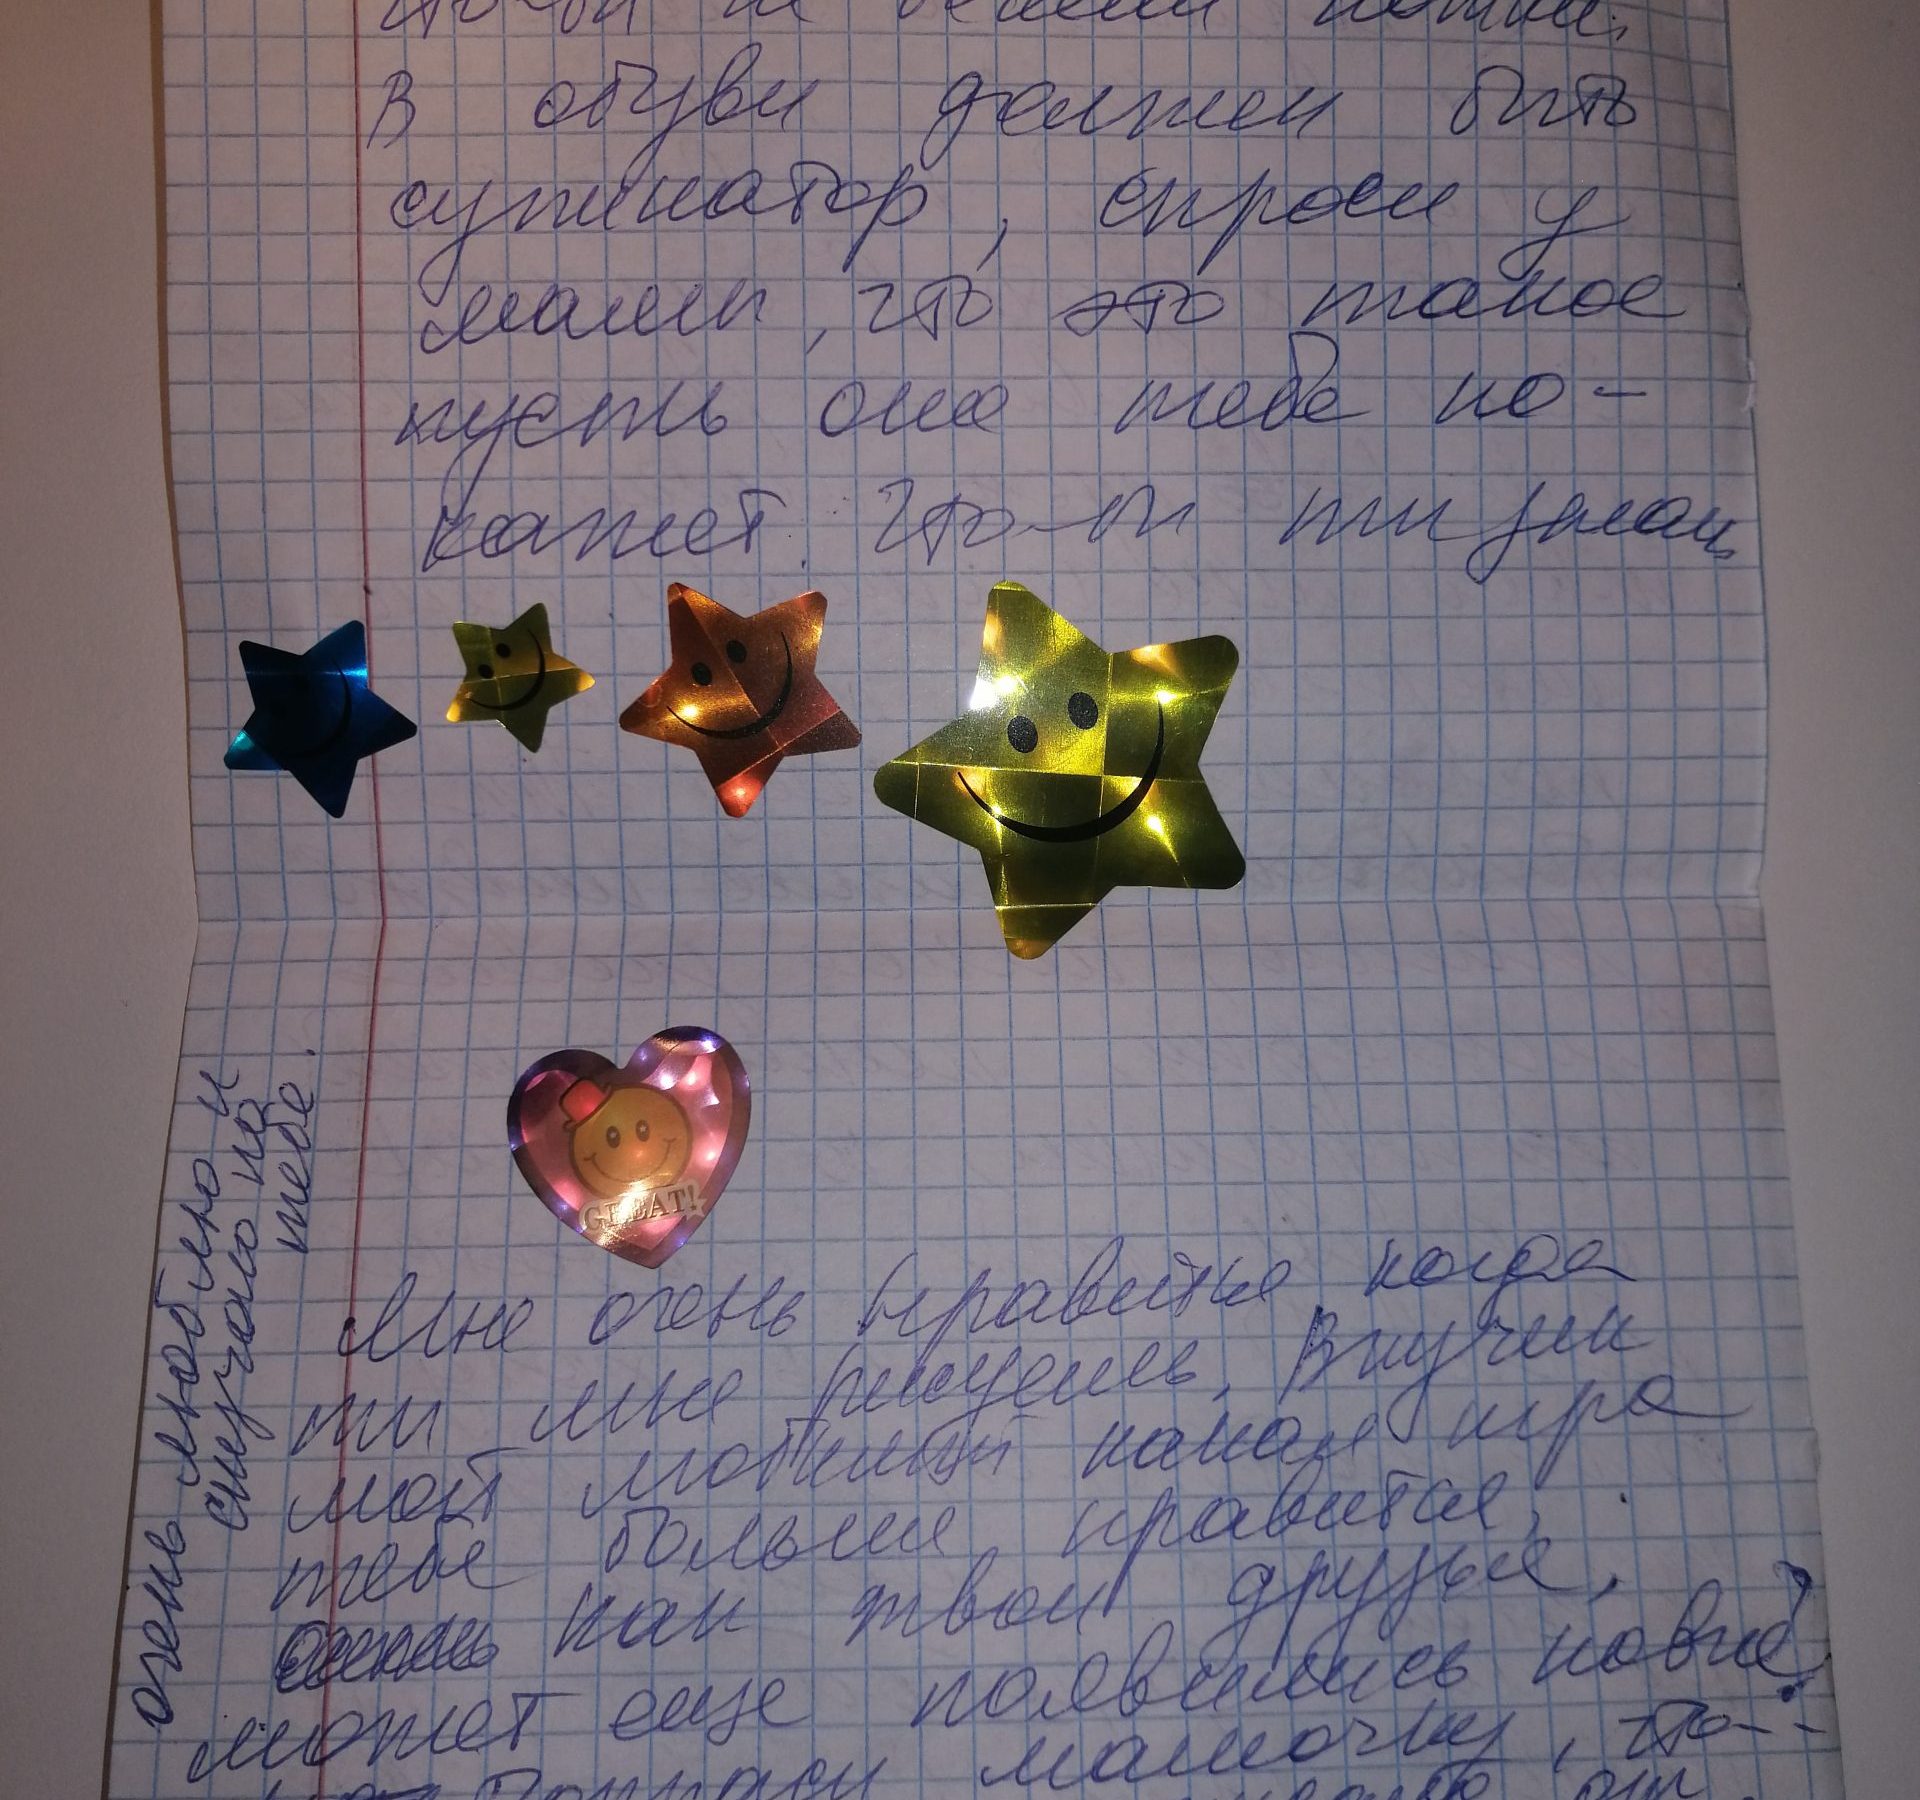 В обуви должен быть
супинатор, спроси у
мамы, что это такое
пусть она тебе по-
кажет. Что-бы ты знал
GREAT!
Мне очень нравится когда
ты мне рисуешь. Внучик
мой любимый какая игра
тебе больше нравится,
как твои друзья,
может еще появились новые?
Попроси мамочку, что-
очень люблю и
скучаю по
тебе.